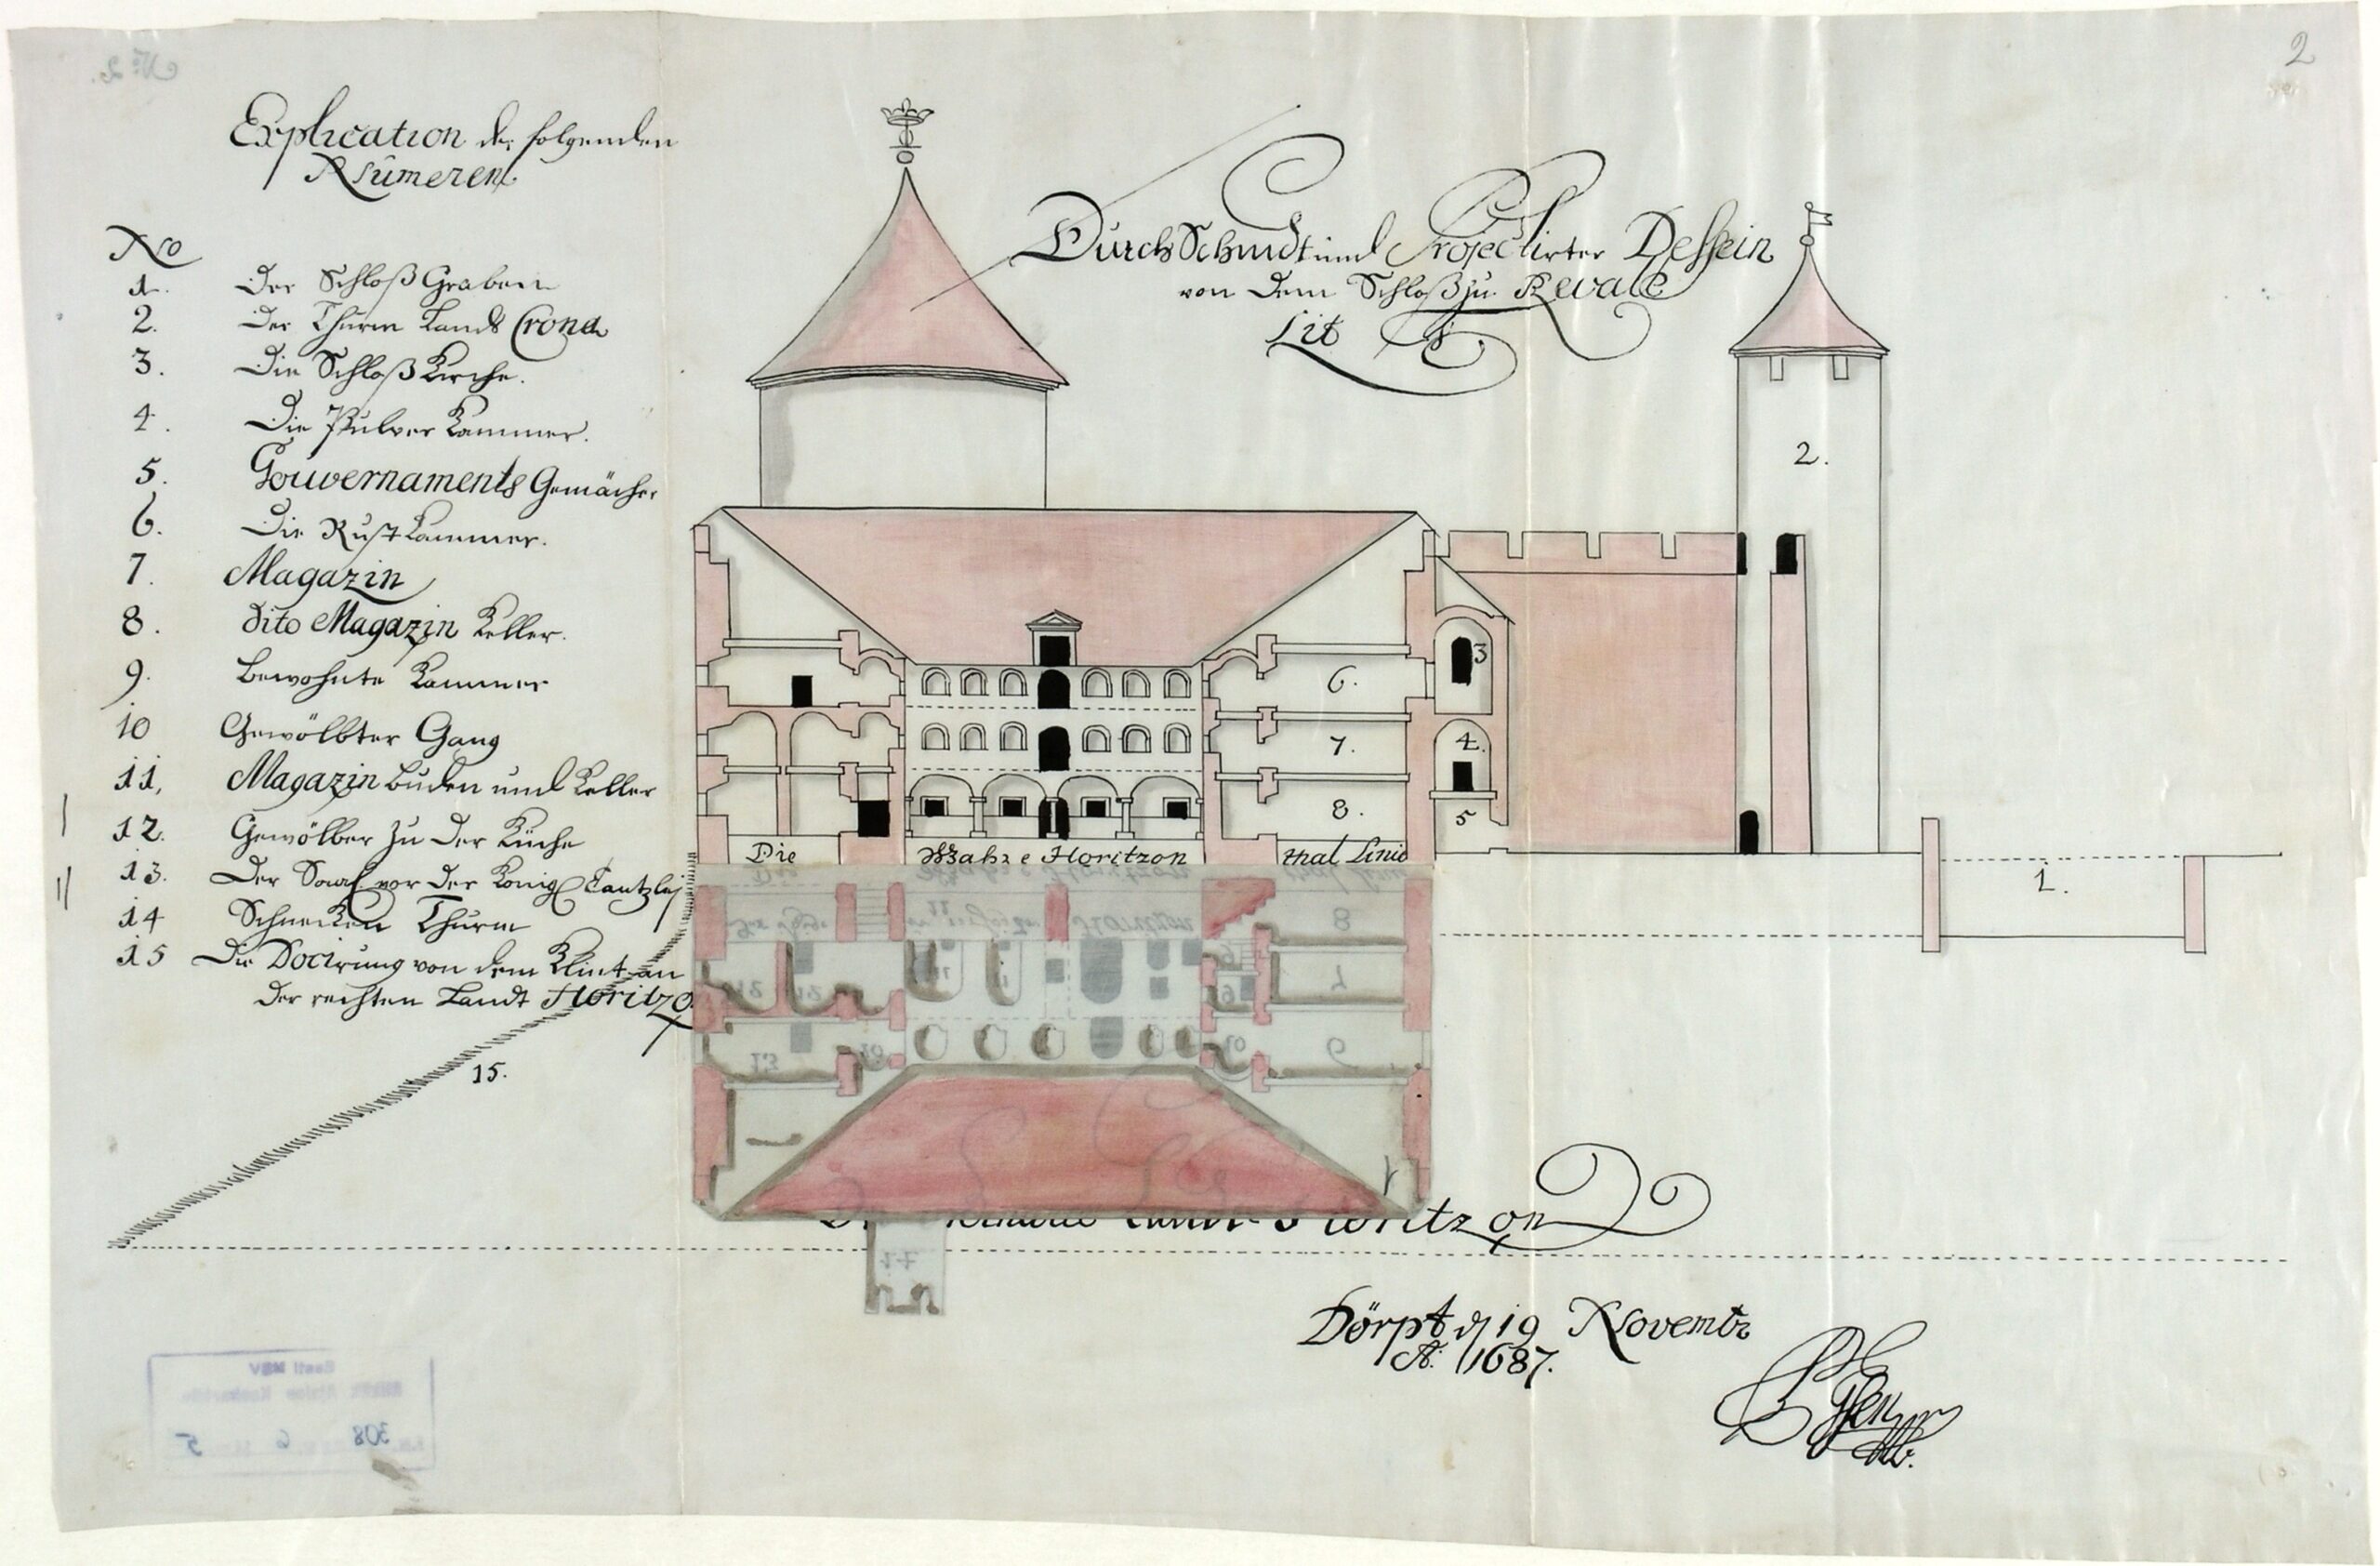 2
Explication der folgenden
Nümeren
No
1. Der Schloß Graben
2. Der Thurm Lands Crona
3. Die Schloß Kirche.
4. Die Pulver Kammer.
5. Gouvernaments Gemächer
6. Die Rust Kammer.
7. Magazin
8. dito Magazin Keller.
9. Bewohnte Kammer
10 Gewölbter Gang
11, Magazin Buden und Keller
12. Gewölber zu der Küche
13. Der Saal vor der Königl Cantzley
14 Schnecken Thurm
15 Die Docirung von dem Klint an
der rechten Landt Horitzo
Durch Schnidt und Projectirter Dessein
von dem Schloß zu Revall
Lit
2.
3
6.
7.
4.
8.
5
Die Wahre Horitzon thal Linie
1.
15.
Horitzon
Dörpt d 19 Novembr
A: 1687.
308 6 5